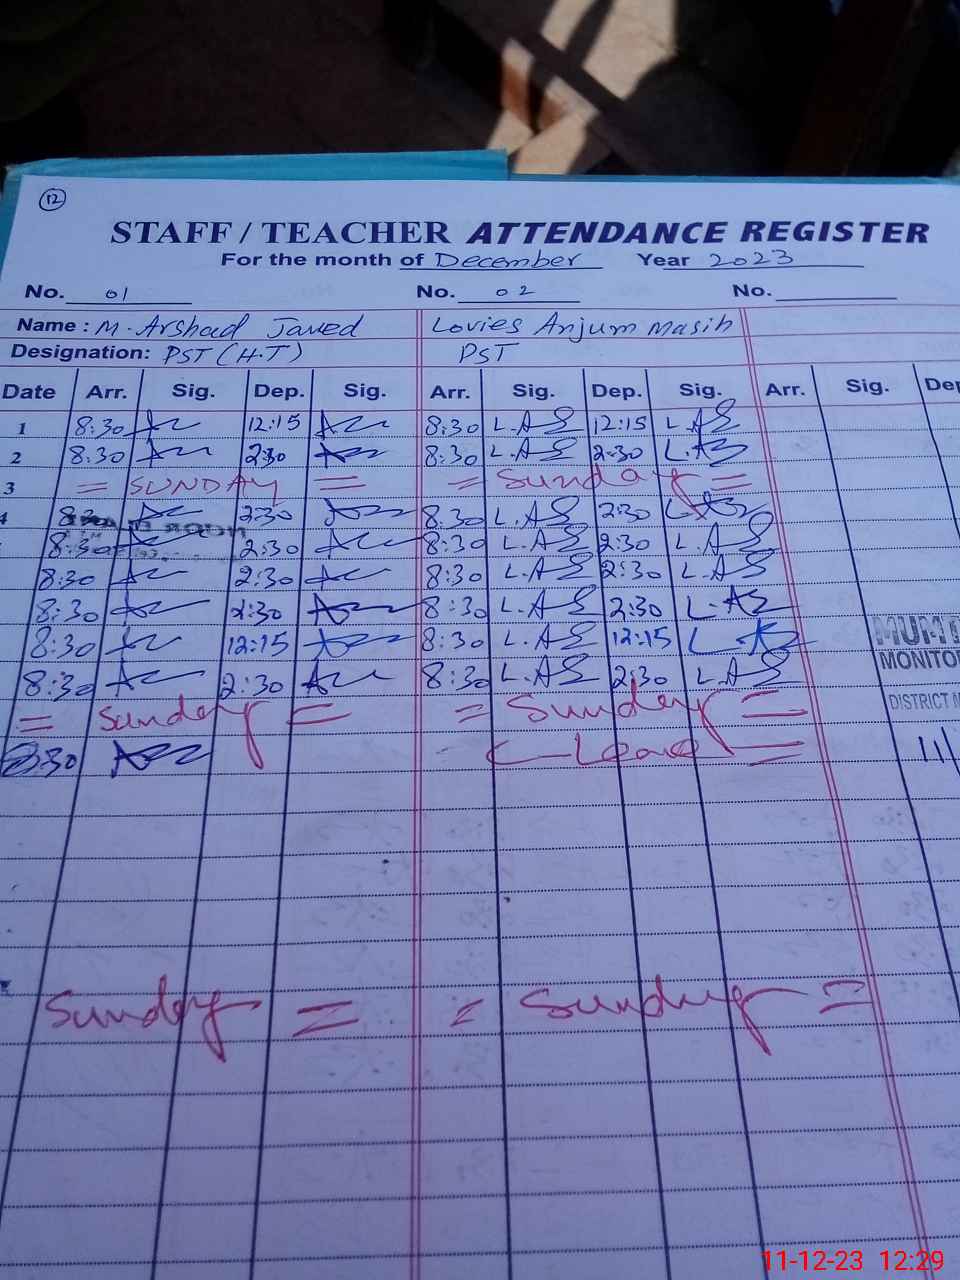 12
STAFF / TEACHER ATTENDANCE REGISTER
For the month of December Year 2023
No. 01 No. 02 No.
Name : M. Arshad Javed Lovies Anjum Masih
Designation: PST (H.T) PST
Date Arr. Sig. Dep. Sig. Arr. Sig. Dep. Sig. Arr. Sig. Dep
1 8:30 12:15 8:30 L.AS 12:15 L.AS
2 8:30 2:30 8:30 L.AS 2:30 L.AS
3 = SUNDAY = = Sunday =
4 8:30 2:30 8:30 L.AS 2:30 L.AS
8:30 2:30 8:30 L.AS 2:30 L.AS
8:30 2:30 8:30 L.AS 2:30 L.AS
8:30 2:30 8:30 L.AS 2:30 L.AS
8:30 12:15 8:30 L.AS 12:15 L.AS
8:30 2:30 8:30 L.AS 2:30 L.AS
MONITOR
DISTRICT
= Sunday = = Sunday =
8:30 Leave = 11/
Sunday = = Sunday =
11-12-23 12:29